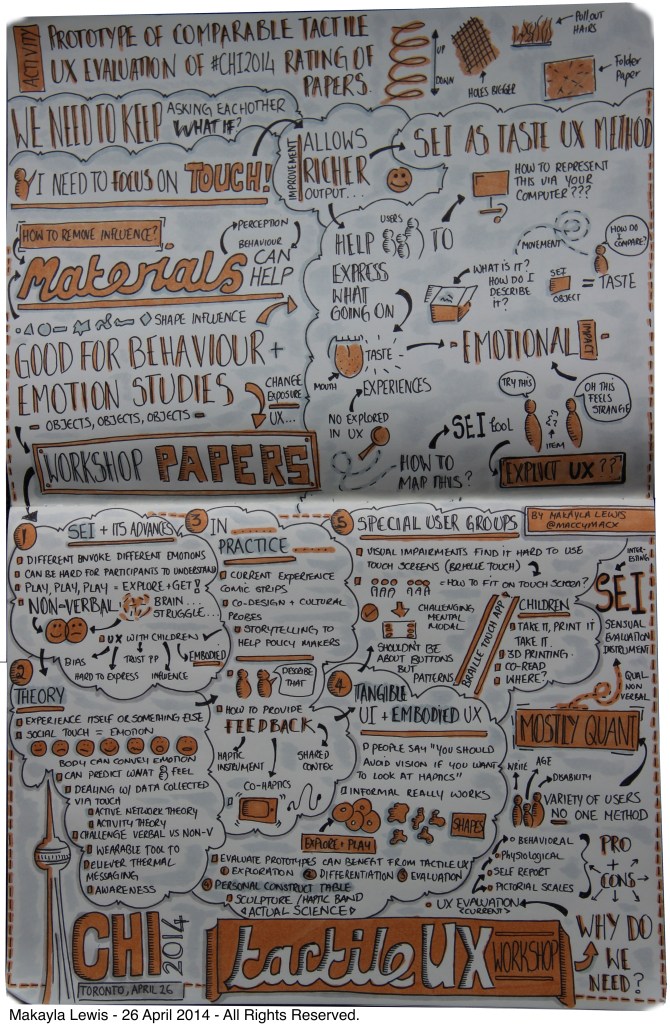 ACTIVITY
PROTOTYPE OF COMPARABLE TACTILE
UX EVALUATION OF #CHI2014 RATING OF
PAPERS.
UP
DOWN
HOLES BIGGER
PULL OUT
HAIRS
Folder
Paper
WE NEED TO KEEP ASKING EACHOTHER
WHAT IF?
I NEED TO FOCUS ON TOUCH!
IMPROVEMENT
ALLOWS
RICHER
OUTPUT...
SEI AS TASTE UX METHOD
HOW TO REPRESENT
THIS VIA YOUR
COMPUTER???
HOW TO REMOVE INFLUENCE?
PERCEPTION
BEHAVIOUR
Materials CAN
HELP
SHAPE INFLUENCE
GOOD FOR BEHAVIOUR +
EMOTION STUDIES
- OBJECTS, OBJECTS, OBJECTS -
CHANGE
EXPOSURE
UX...
WORKSHOP PAPERS
USERS
HELP TO
EXPRESS
WHAT
GOING ON
MOVEMENT
HOW DO I
COMPARE?
WHAT IS IT?
HOW DO I
DESCRIBE
IT?
SEI
OBJECT
= TASTE
MOUTH
TASTE
EXPERIENCES
- EMOTIONAL
IMPACT
NO EXPLORED
IN UX
HOW TO
MAP THIS?
SEI tool
TRY THIS
OH THIS
FEELS
STRANGE
ITEM
EXPLICIT UX??
BY MAKAYLA LEWIS
@MACCYMACX
1
SEI + ITS ADVANCES
DIFFERENT ENVOKE DIFFERENT EMOTIONS
CAN BE HARD FOR PARTICIPANTS TO UNDERSTAND
PLAY, PLAY, PLAY = EXPLORE + GET!
NON=VERBAL
BRAIN...
STRUGGLE...
UX WITH CHILDREN
BIAS
HARD TO EXPRESS
TRUST PP
INFLUENCE
EMBODIED
2
THEORY
EXPERIENCE ITSELF OR SOMETHING ELSE
SOCIAL TOUCH = EMOTION
BODY CAN CONVEY EMOTION
CAN PREDICT WHAT FEEL
DEALING W/ DATA COLLECTED
VIA TOUCH
ACTIVE NETWORK THEORY
ACTIVITY THEORY
CHALLENGE VERBAL VS NON-V
WEARABLE TOOL TO
DELIEVER THERMAL
MESSAGING
AWARENESS
3
IN
PRACTICE
CURRENT EXPERIENCE
COMIC STRIPS
CO-DESIGN + CULTURAL
PROBES
STORYTELLING TO
HELP POLICY MAKERS
DESCRIBE
THAT
HOW TO PROVIDE
FEEDBACK
HAPTIC
INSTRUMENT
SHARED
CONTEX
CO-HAPTICS
4
TANGIBLE
UI + EMBODIED UX
PEOPLE SAY "YOU SHOULD
AVOID VISION IF YOU WANT
TO LOOK AT HAPTICS"
INFORMAL REALLY WORKS
SHAPES
EXPLORE + PLAY
EVALUATE PROTOTYPES CAN BENEFIT FROM TACTILE UX
1 EXPLORATION 2 DIFFERENTIATION 3 EVALUATION
4 PERSONAL CONSTRUCT TABLE
SCULPTURE / HAPTIC BAND
<ACTUAL SCIENCE>
5
SPECIAL USER GROUPS
VISUAL IMPAIRMENTS FIND IT HARD TO USE
TOUCH SCREENS (BRAILLE TOUCH)
= HOW TO FIT ON TOUCH SCREEN?
CHALLENGING
MENTAL
MODAL
SHOULDN'T BE
ABOUT BUTTONS
BUT
PATTERNS
BRAILLE TOUCH APP
CHILDREN
TAKE IT, PRINT IT
TAKE IT.
3D PRINTING.
CO-READ
WHERE?
INTER-
ESTING
SEI
SENSUAL
EVALUATION
INSTRUMENT
QUAL
NON
VERBAL
MOSTLY QUANT
WRITE
AGE
DISABILITY
VARIETY OF USERS
NO ONE METHOD
BEHAVIORAL
PHYSIOLOGICAL
SELF REPORT
PICTORIAL SCALES
PRO
+
CONS
UX EVALUATION
<CURRENT>
WHY DO
WE
NEED?
CHI 2014
TORONTO, APRIL 26
tactile UX WORKSHOP
Makayla Lewis - 26 April 2014 - All Rights Reserved.